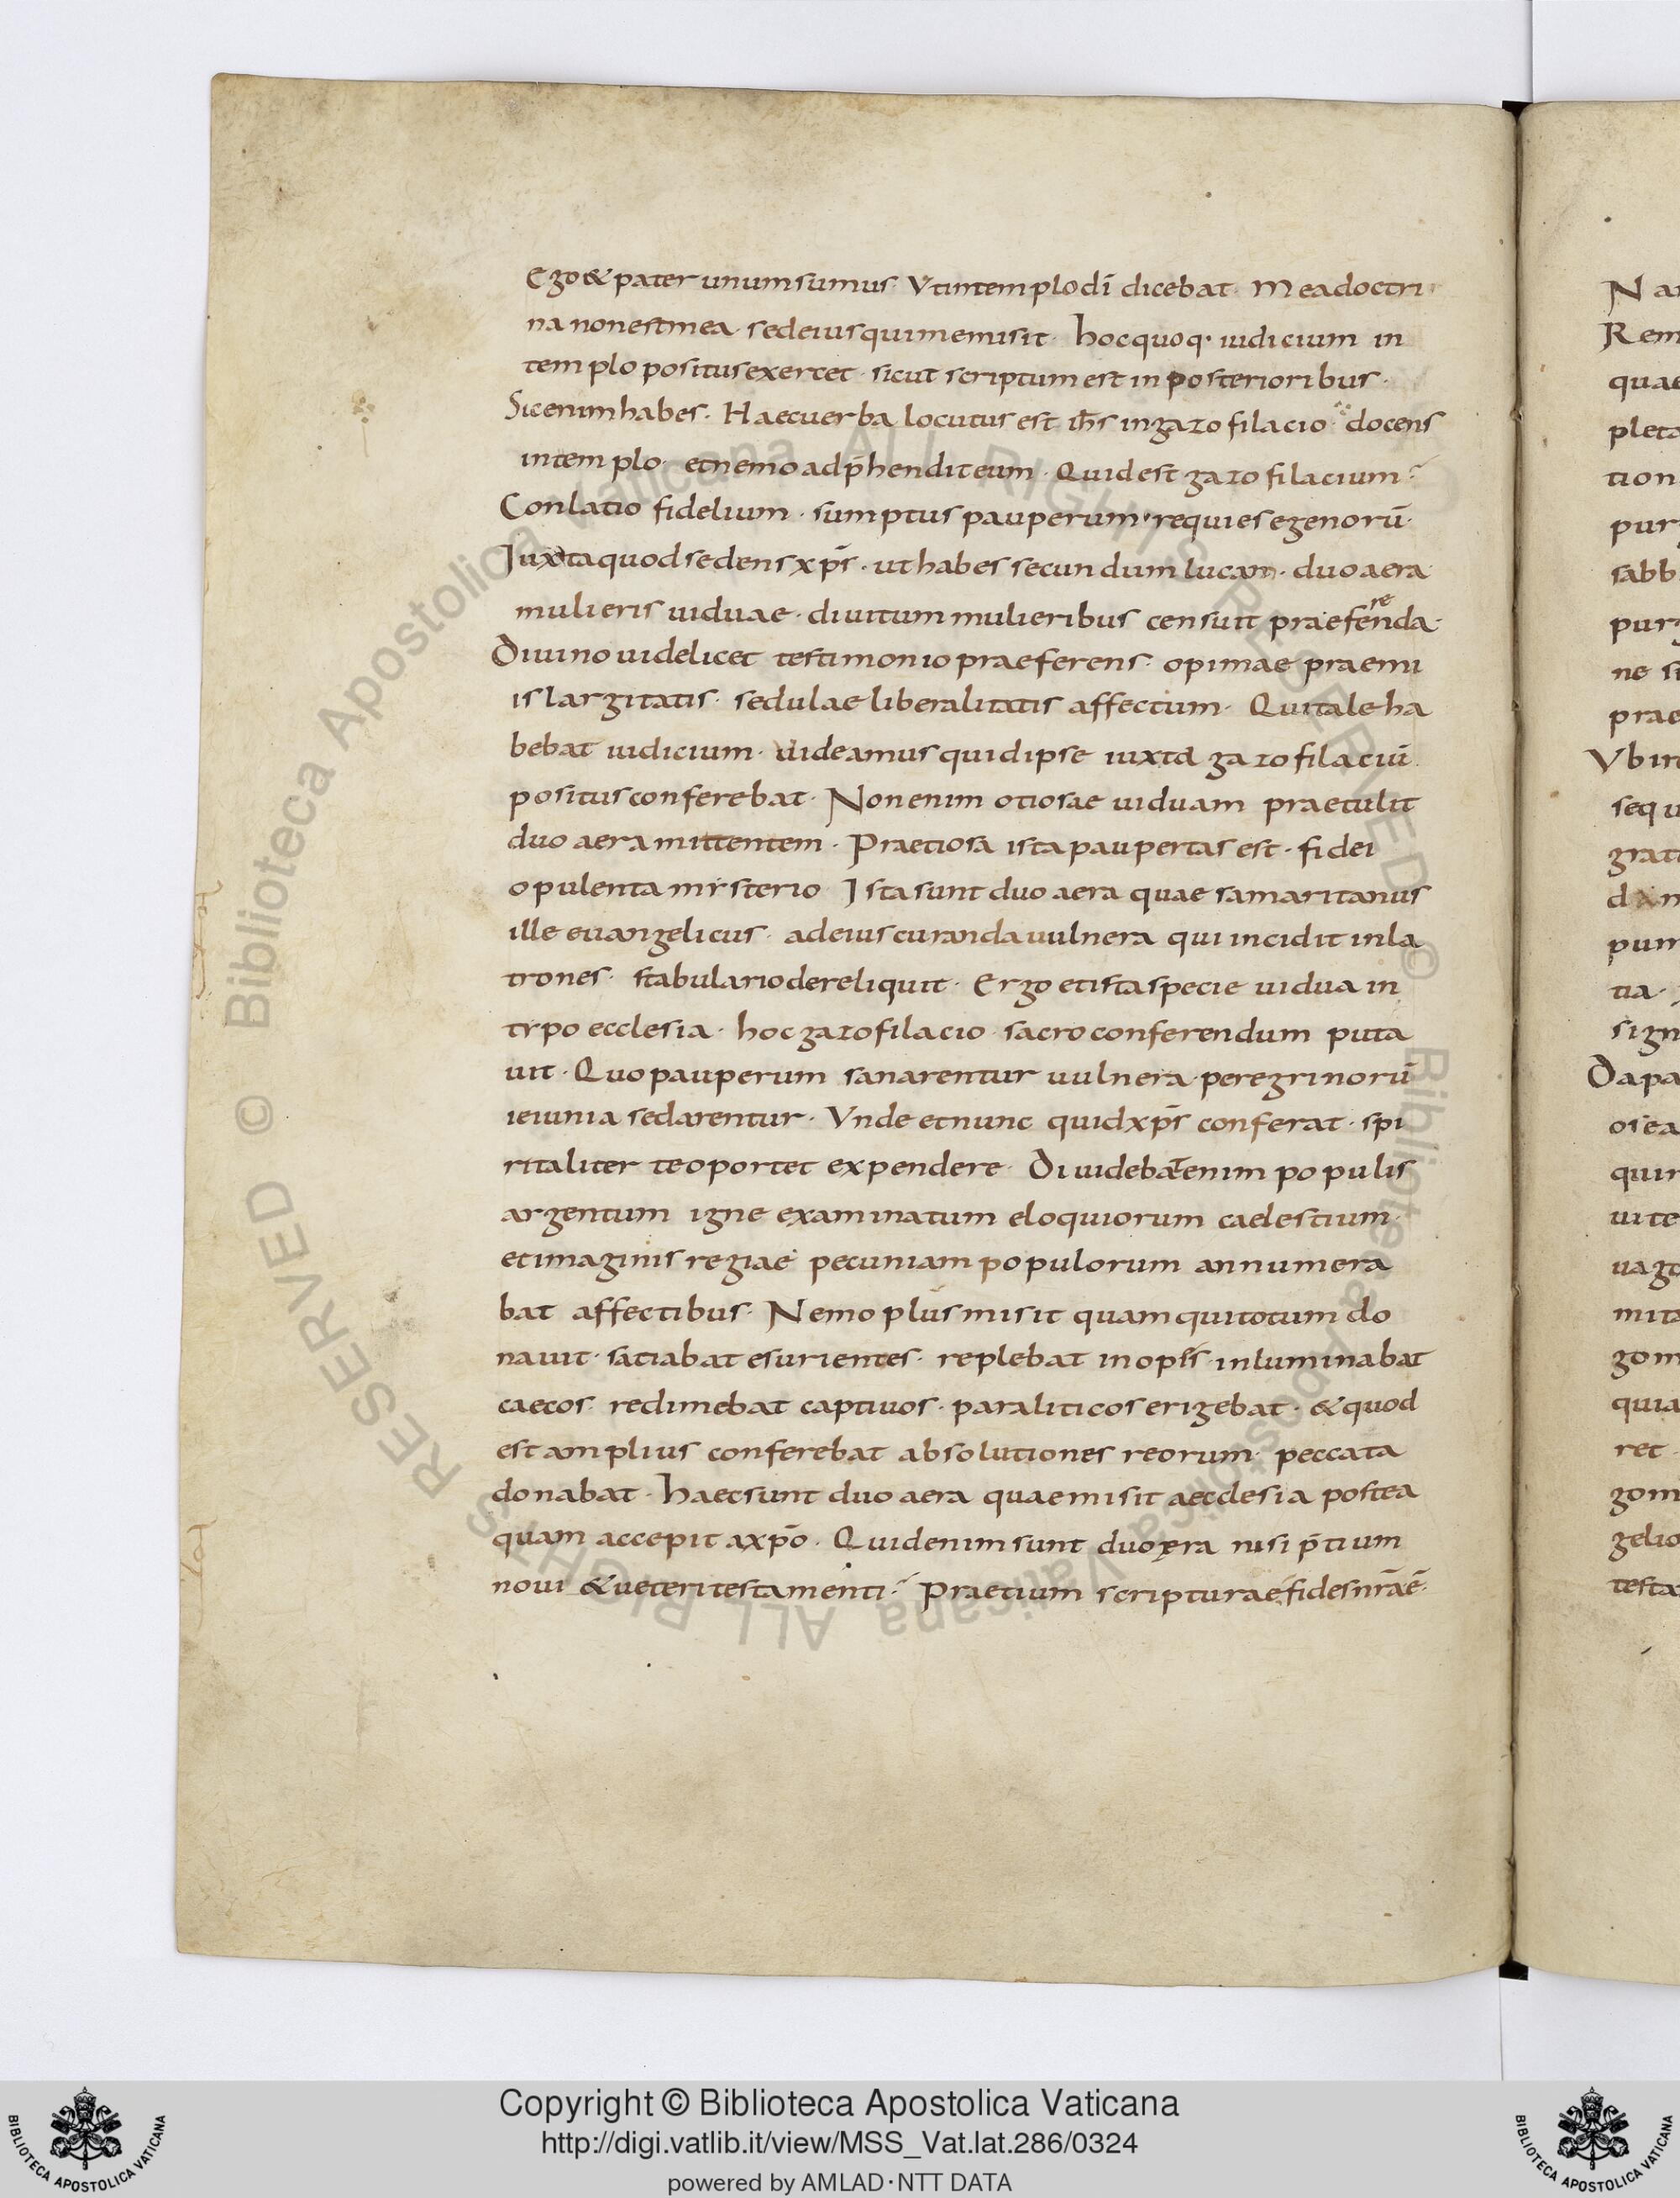 Ego & pater unum sumus· Ut in templo dī dicebat· Mea doctri
na non est mea· sed eius qui me misit· hoc quoq· iudicium in
templo positus exercet· sicut scriptum est in posterioribus·
Sic enim habes· Haec uerba locutus est ih̄s in gazofilacio docens
in templo· et nemo adp̄hendit eum· Quid est gazofilacium?
Conlatio fidelium· sumptus pauperum· requies egenorū·
Iuxta quod sedens xp̄s· ut habes secundum lucam· duo aera
mulieris uiduae· diuitum mulieribus censuit praeferenda·
Diuino uidelicet testimonio praeferens· opimae praemi
is largitatis· sedulae liberalitatis affectum· Qui tale ha
bebat iudicium· uideamus quid ipse iuxta gazofilaciū
positus conferebat· Non enim otiosae uiduam praetulit
duo aera mittentem· Praetiosa ista paupertas est· fidei
opulenta mysterio Ista sunt duo aera quae samaritanus
ille euangelicus· ad eius curanda uulnera qui incidit in la
trones· stabulario dereliquit· Ergo et ista specie uidua in
typo ecclesia· hoc gazofilacio sacro conferendum puta
uit· Quo pauperum sanarentur uulnera· peregrinorū
ieiunia sedarentur· Unde et nunc quid xp̄s conferat· spi
ritaliter te oportet expendere· Diuidebat enim populis
argentum igne examinatum eloquiorum caelestium·
et imaginis regiae pecuniam populorum annumera
bat affectibus· Nemo plus misit quam qui totum do
nauit· satiabat esurientes· replebat inopes· inluminabat
caecos· redimebat captiuos· paraliticos erigebat· & quod
est amplius conferebat absolutiones reorum· peccata
donabat· haec sunt duo aera quae misit aecclesia postea
quam accepit a xp̄o· Quid enim sunt duo ęra nisi p̄tium
noui & ueteri testamenti? Praetium scripturae fides nr̄ae·
Na
Rem
quae
pleta
tion
purg
sabb
purg
ne si
prae
Ubin
sequ
grati
dam
pum
tia·
sign
Dapa
osea
quin
uite
uago
mita
gom
quia
ret·
gom
gelio
testa
© Biblioteca Apostolica Vaticana ALL RIGHTS RESERVED © Biblioteca Apostolica Vaticana ALL RIGHTS RESERVED
Copyright © Biblioteca Apostolica Vaticana
http://digi.vatlib.it/view/MSS_Vat.lat.286/0324
powered by AMLAD·NTT DATA
BIBLIOTECA APOSTOLICA VATICANA
BIBLIOTECA APOSTOLICA VATICANA